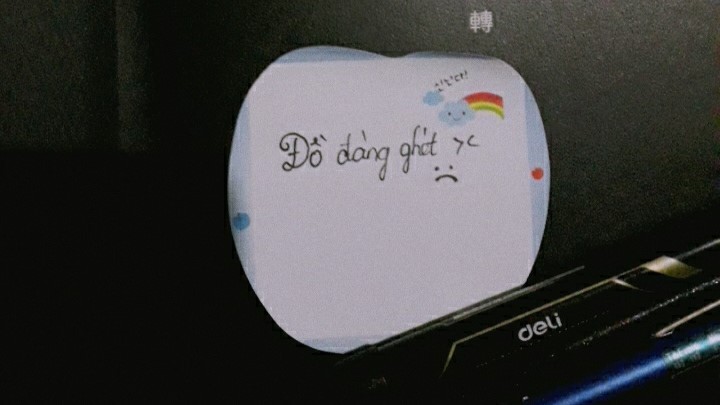 轉
신난다!
Đồ đáng ghét ><
deli